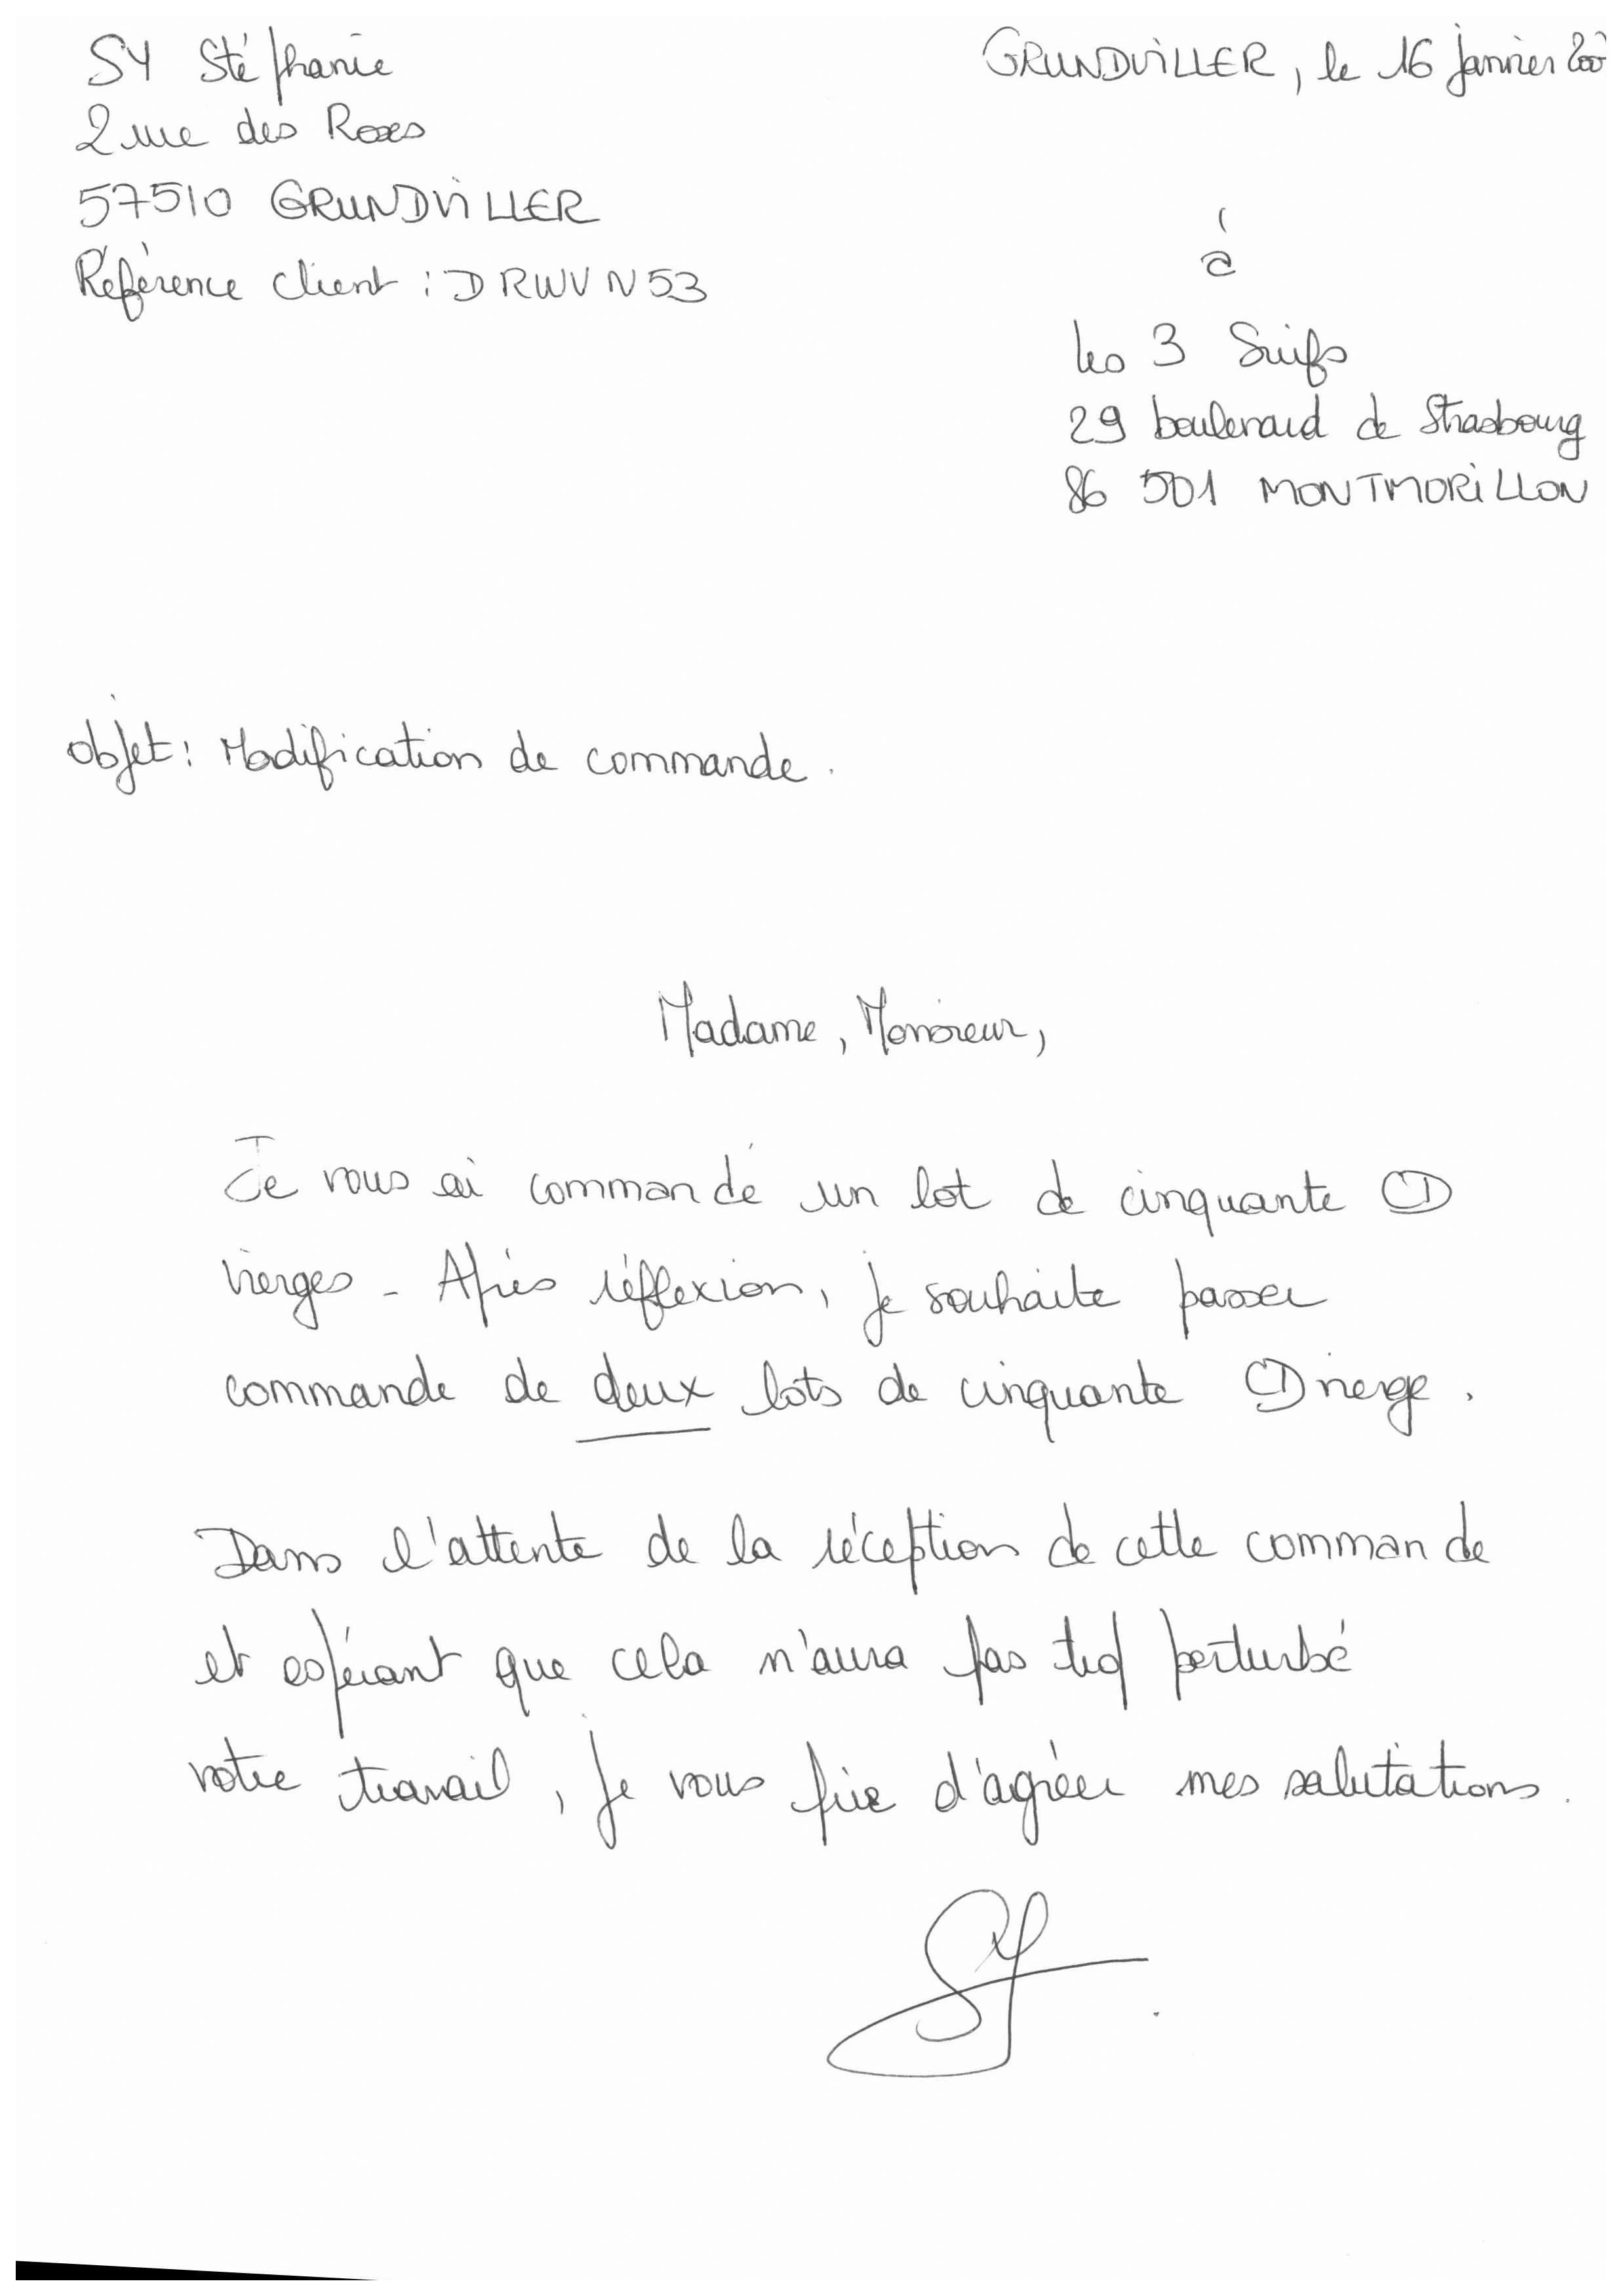 SY Stéphanie
2 rue des Roses
57510 GRUNDVILLER
Référence client : DRWVN53
GRUNDVILLER, le 16 janvier
à
les 3 Suifs
29 boulevard de Strasbourg
86 501 MONTMORILLON
objet : Modification de commande.
Madame, Monsieur,
Je vous ai commandé un lot de cinquante CD
vierges - Après réflexion, je souhaite passer
commande de deux lots de cinquante CD vierge.
Dans l'attente de la réception de cette commande
et espérant que cela n'aura pas trop perturbé
votre travail, je vous prie d'agréer mes salutations.
SY